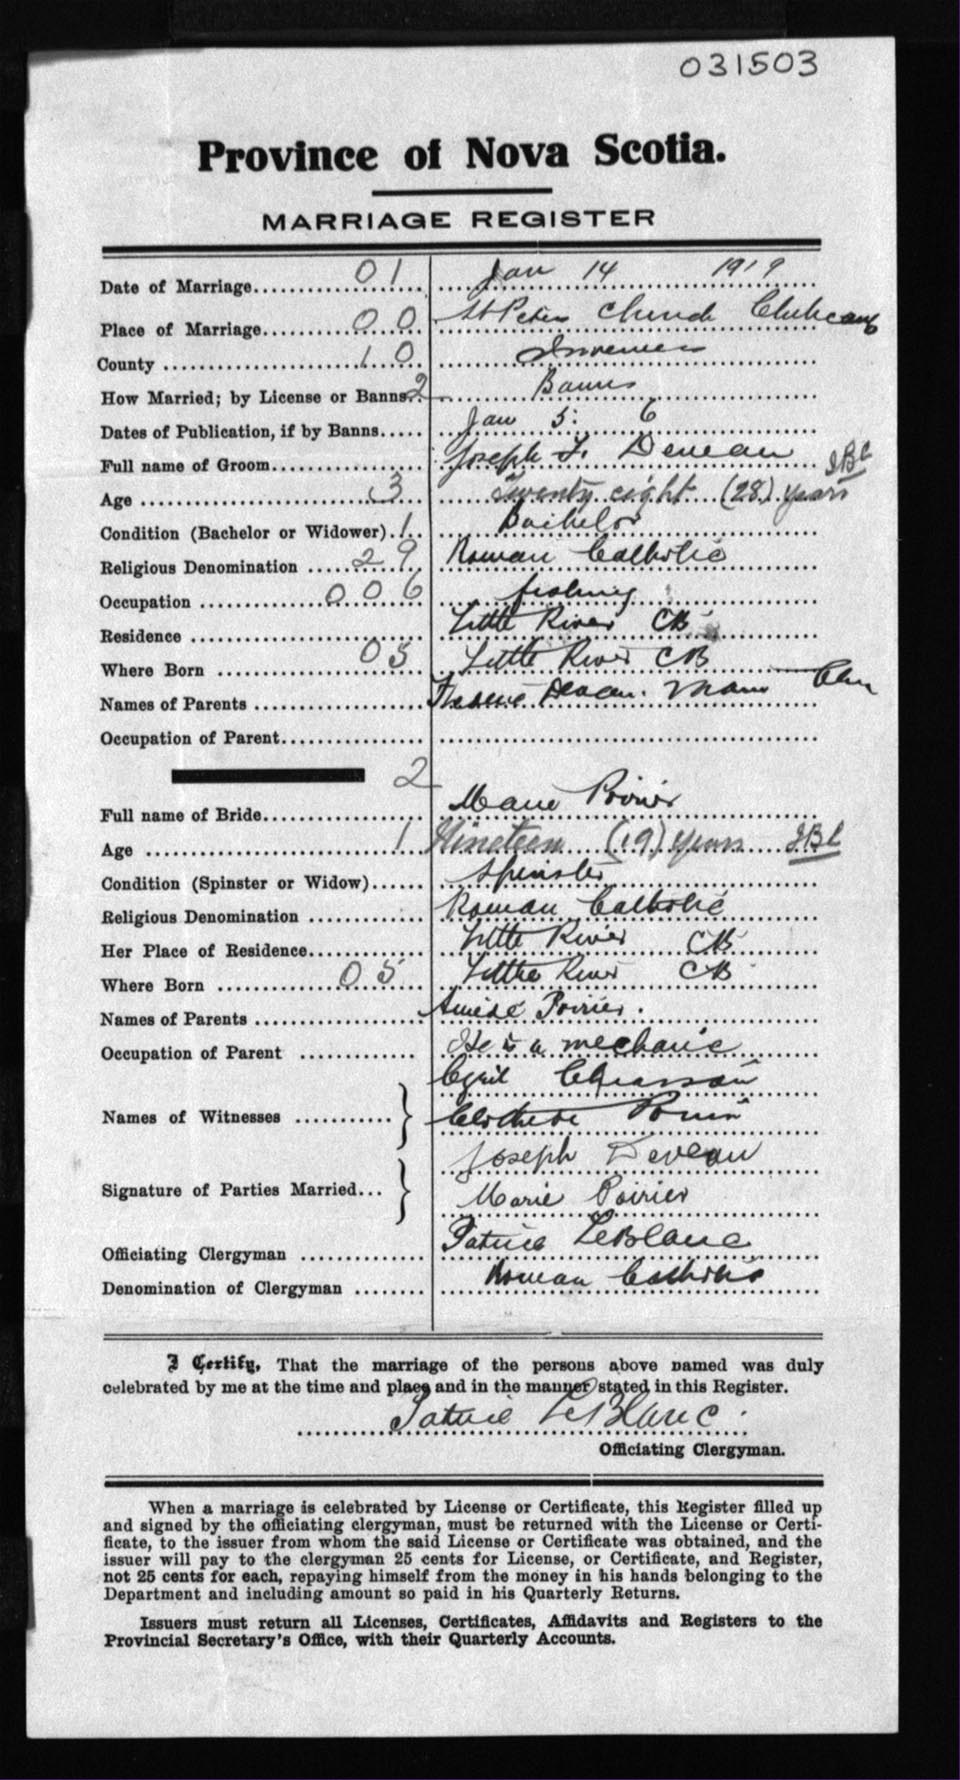 031503
Province of Nova Scotia.
MARRIAGE REGISTER
Date of Marriage 01 Jan 14 1919
Place of Marriage 00 St Peters Church
County 10 Inverness
How Married; by License or Banns 2 Banns
Dates of Publication, if by Banns Jan 5: 6
Full name of Groom Joseph Deveau
Age 3 Twenty eight (28) years
Condition (Bachelor or Widower) 1 Bachelor
Religious Denomination 29 Roman Catholic
Occupation 006 fishing
Residence Little River CB
Where Born 05 Little River CB
Names of Parents Deveau.
Occupation of Parent
2
Full name of Bride Marie Poirier
Age 1 Nineteen (19) years
Condition (Spinster or Widow) Spinster
Religious Denomination Roman Catholic
Her Place of Residence Little River CB
Where Born 05 Little River CB
Names of Parents Poirier.
Occupation of Parent He is a mechanic
Cyril Chiasson
Names of Witnesses } Poirier
Joseph Deveau
Signature of Parties Married... } Marie Poirier
Officiating Clergyman Patrice LeBlanc
Denomination of Clergyman Roman Catholic
I Certify, That the marriage of the persons above named was duly
celebrated by me at the time and place and in the manner stated in this Register.
Patrice LeBlanc.
Officiating Clergyman.
When a marriage is celebrated by License or Certificate, this Register filled up
and signed by the officiating clergyman, must be returned with the License or Certi-
ficate, to the issuer from whom the said License or Certificate was obtained, and the
issuer will pay to the clergyman 25 cents for License, or Certificate, and Register,
not 25 cents for each, repaying himself from the money in his hands belonging to the
Department and including amount so paid in his Quarterly Returns.
Issuers must return all Licenses, Certificates, Affidavits and Registers to the
Provincial Secretary's Office, with their Quarterly Accounts.